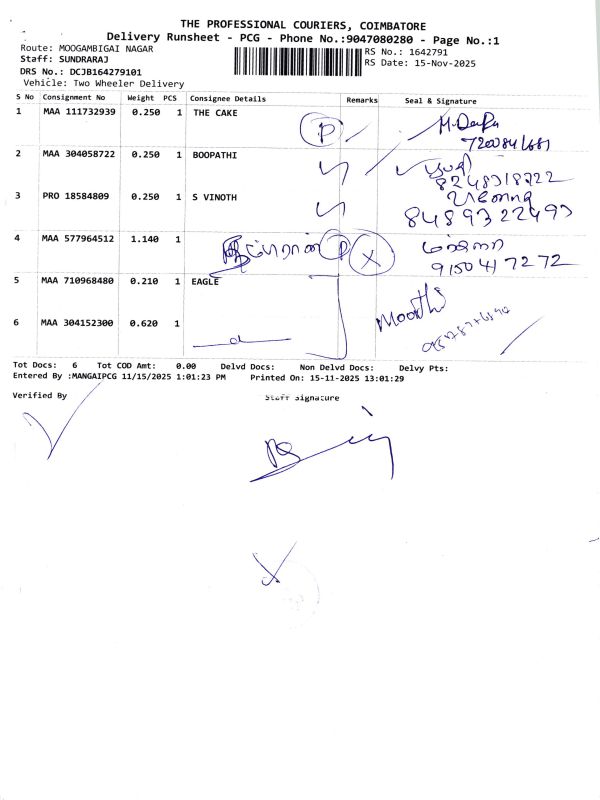 THE PROFESSIONAL COURIERS, COIMBATORE
Delivery Runsheet - PCG - Phone No.:9047080280 - Page No.:1
Route: MOOGAMBIGAI NAGAR
RS No.: 1642791
Staff: SUNDRARAJ
RS Date: 15-Nov-2025
DRS No.: DCJB164279101
Vehicle: Two Wheeler Delivery
S No Consignment No Weight PCS Consignee Details Remarks Seal & Signature
1 MAA 111732939 0.250 1 THE CAKE P
2 MAA 304058722 0.250 1 BOOPATHI
8248318722
3 PRO 18584809 0.250 1 S VINOTH
8489322493
4 MAA 577964512 1.140 1 P X
9150417272
5 MAA 710968480 0.210 1 EAGLE
Moorthi
6 MAA 304152300 0.620 1
Tot Docs: 6 Tot COD Amt: 0.00 Delvd Docs: Non Delvd Docs: Delvy Pts:
Entered By :MANGAIPCG 11/15/2025 1:01:23 PM Printed On: 15-11-2025 13:01:29
Verified By Staff Signature